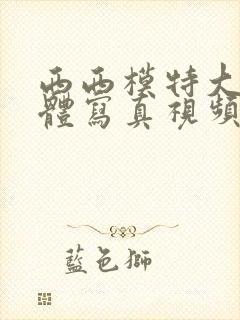 西西模特大
體寫真視頻
藍色獅